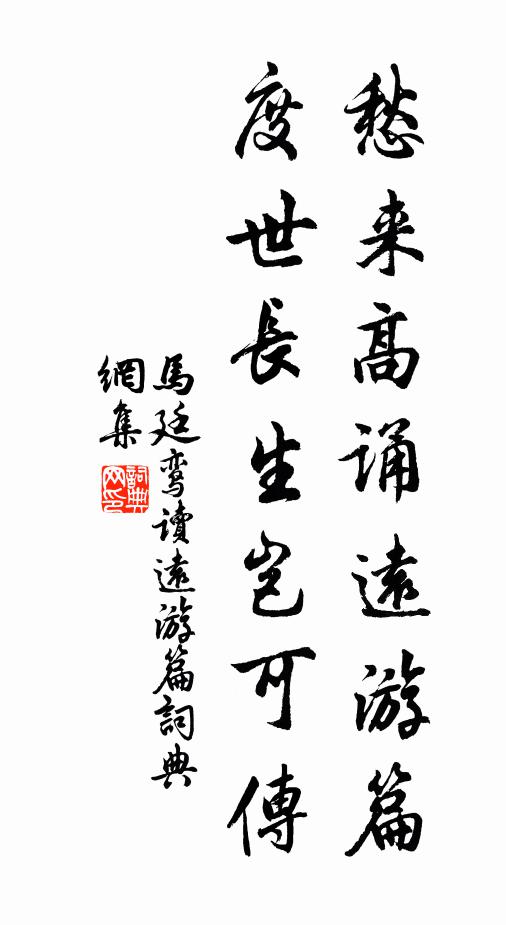 愁来高诵遠游篇
度世長生岂可傳
馬廷鸾讀遠游篇詞典
網集
詞典网印